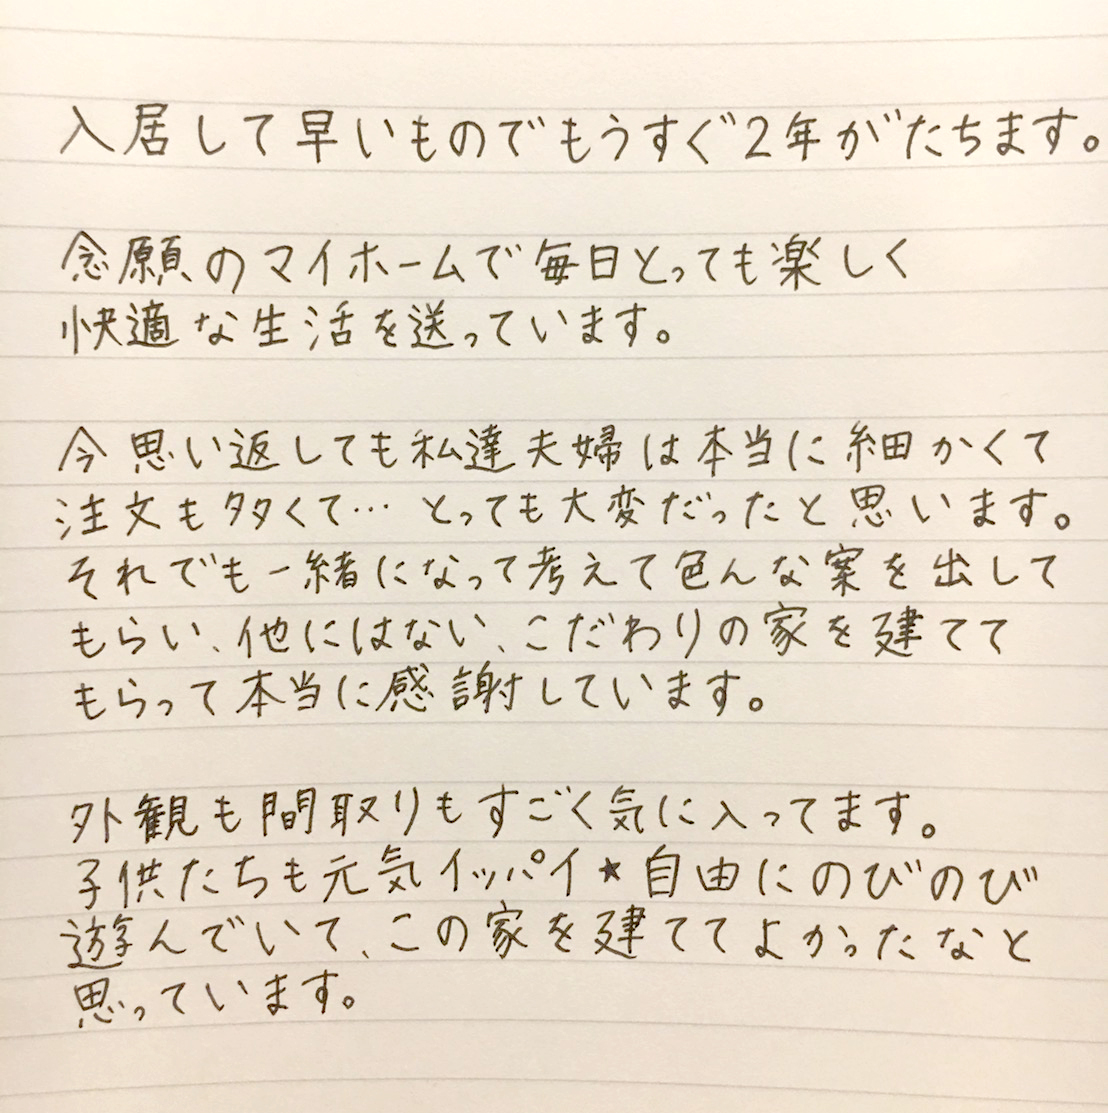 入居して早いものでもうすぐ2年がたちます。
念願のマイホームで毎日とっても楽しく
快適な生活を送っています。
今思い返しても私達夫婦は本当に細かくて
注文も多くて… とっても大変だったと思います。
それでも一緒になって考えて色んな案を出して
もらい、他にはない、こだわりの家を建てて
もらって本当に感謝しています。
外観も間取りもすごく気に入ってます。
子供たちも元気イッパイ★自由にのびのび
遊んでいて、この家を建ててよかったなと
思っています。